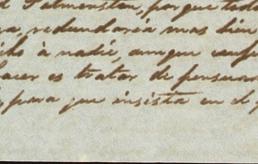 Palmerston, porque todo
redundaría mas bien
á nadie, aunque
hacer es tratar de persuad
para que insista en el